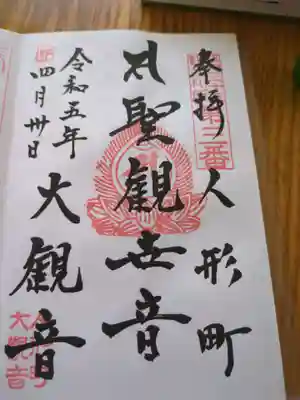 奉拝 人形町
聖観世音
大観音
令和五年
四月卅日
三番
大観音